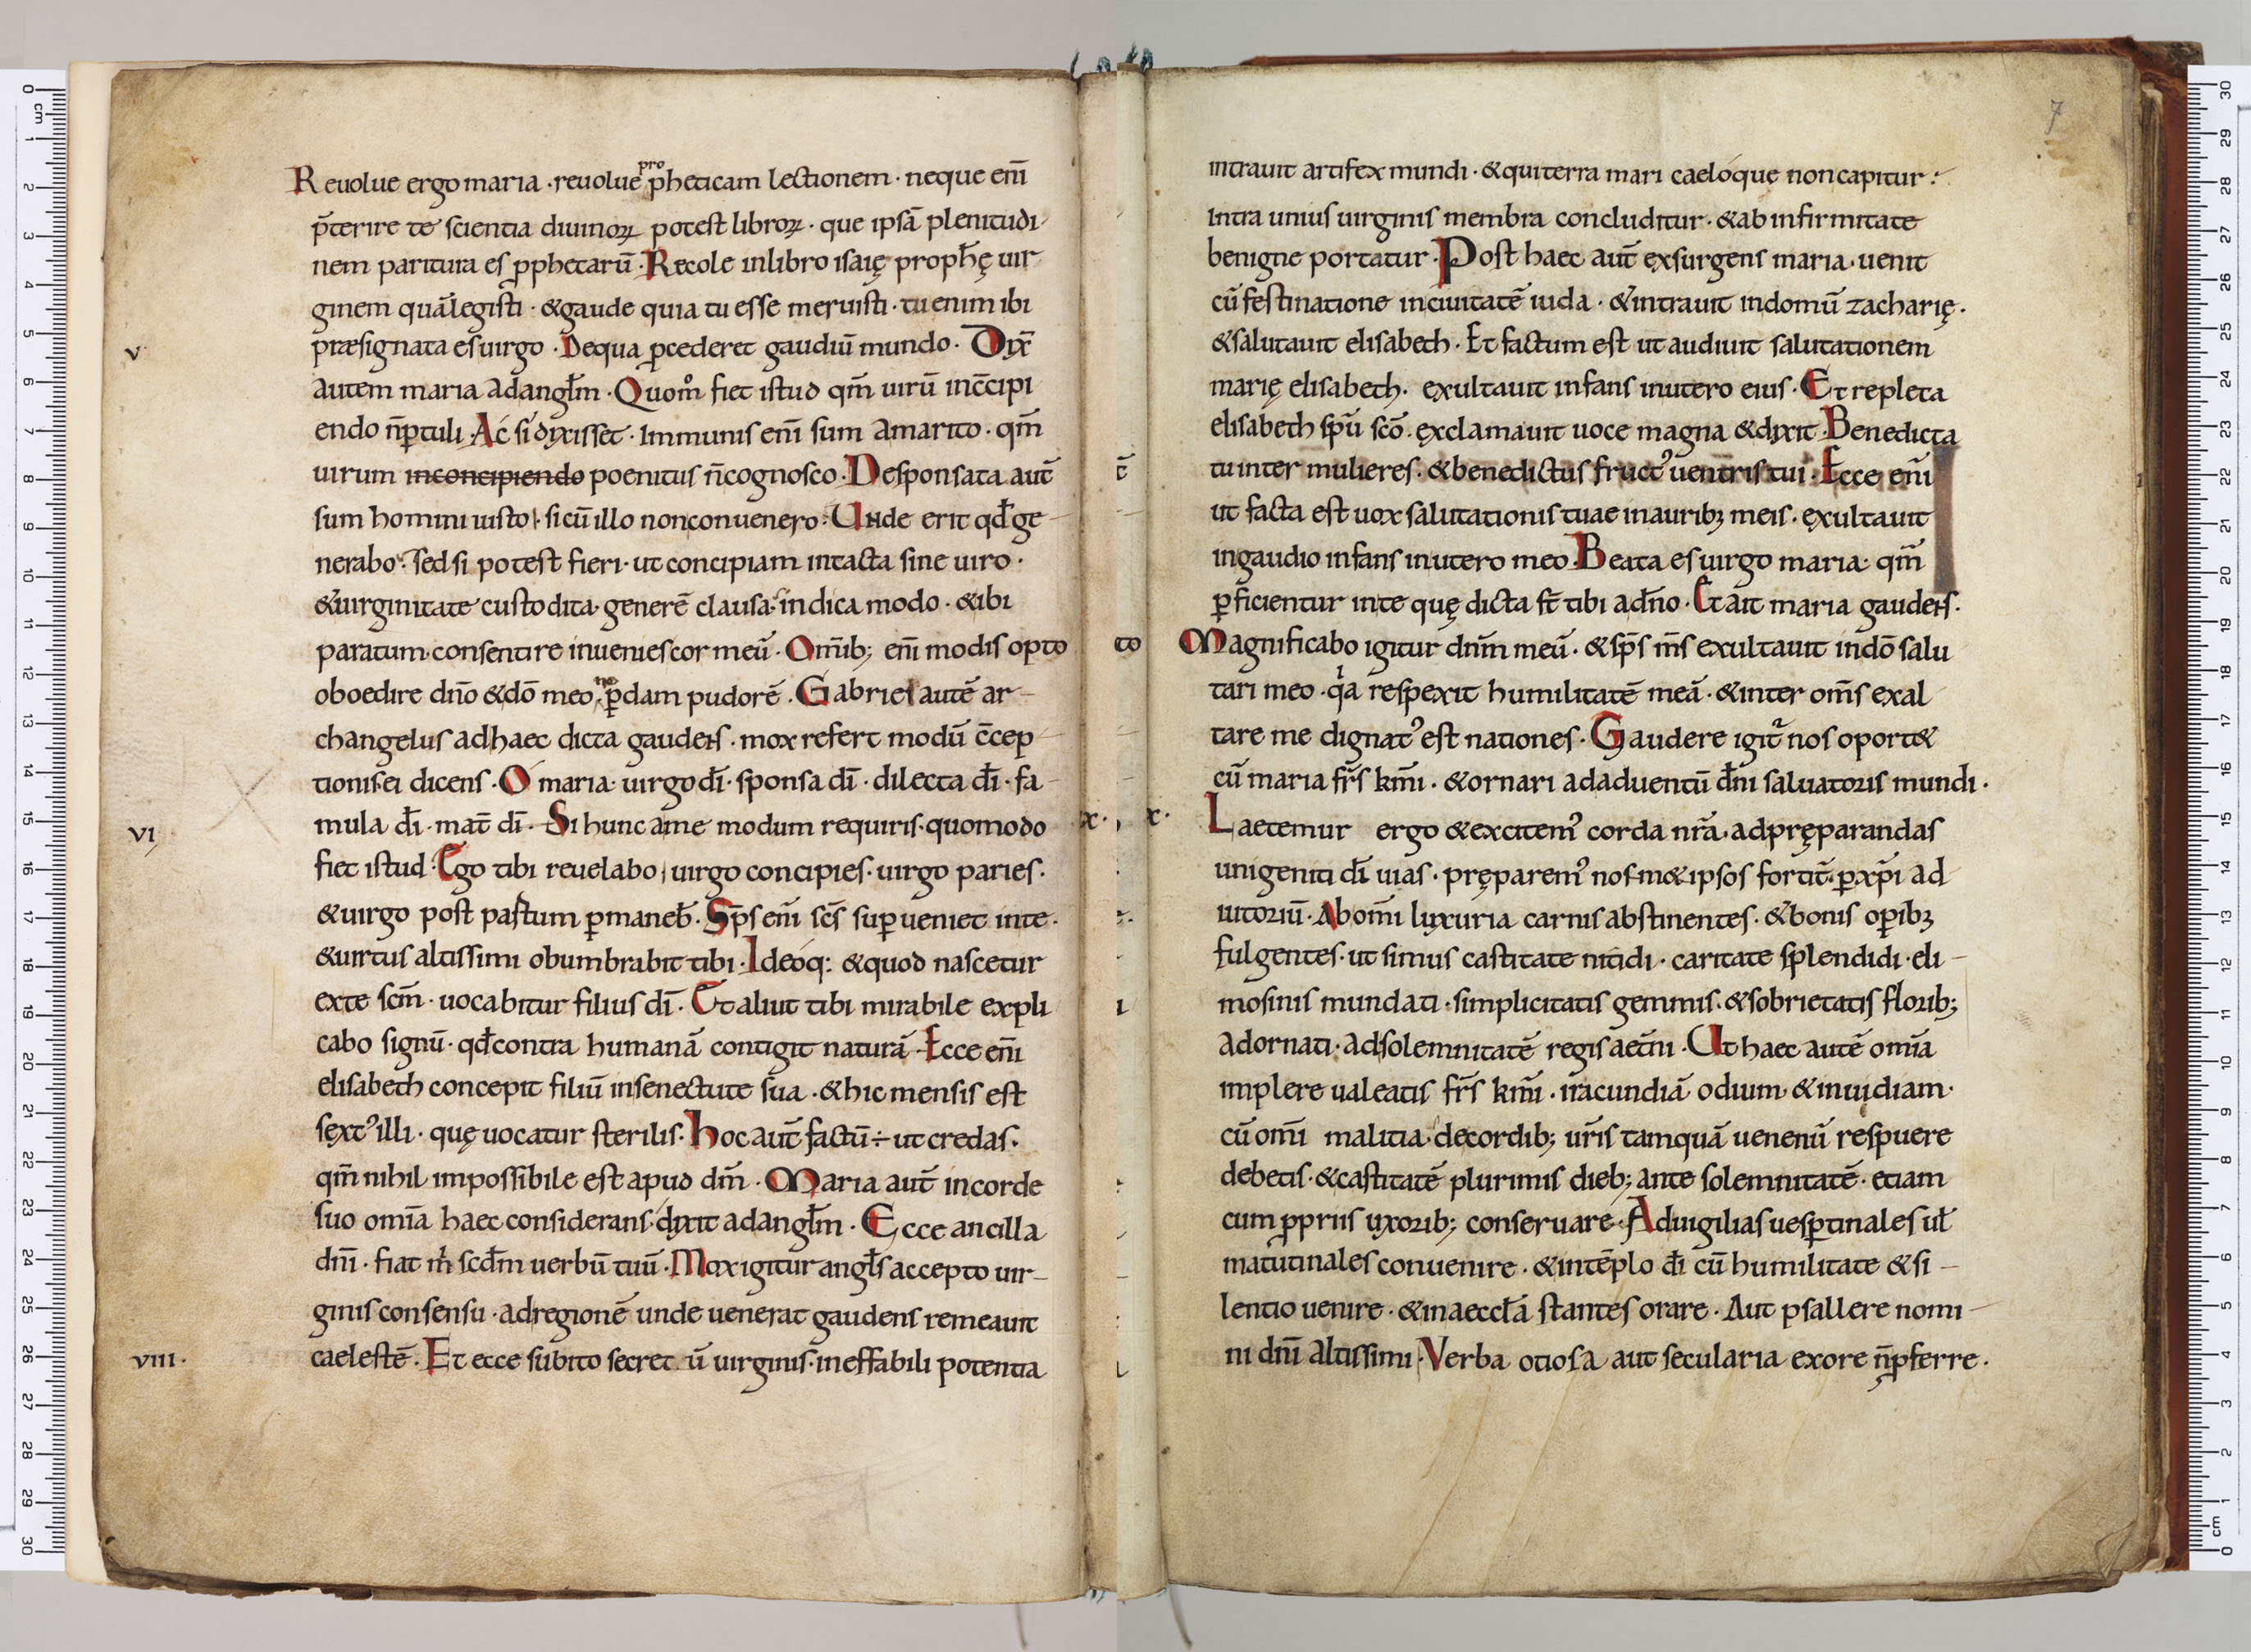 Reuolue ergo maria · reuolue ꝓpheticam lectionem · neque enī
p̄terire te scientia diuinoꝝ potest libroꝝ · que ipsā plenitudi
nem paritura es ꝓphetarū · Recole inlibro isaię proph̄ę uir
ginem quālegisti · &gaude quia tu esse meruisti · tu enim ibi
v
præsignata es uirgo · De qua ꝓcederet gaudiū mundo · Dix̄
autem maria ad angl̄m · Quom̊ fiet istud qm̄ uirū inc̄cipi
endo n̄ꝑtuli · Ac si dixisset · Immunis enī sum a marito · qm̄
uirum inconcipiendo poenitus n̄cognosco · Desponsata aut̄
sum homini iusto · si cū illo nonconuenero · Unde erit qd̄ ge
nerabo · Sed si potest fieri · ut concipiam intacta sine uiro ·
&uirginitate custodita · generē clausa · indica modo · &ibi
paratum · consentire inuenies cor meū · Omīb; enī modis opto
oboedire dn̄o &dō meo · ne ꝑdam pudorē · Gabriel autē ar
changelus adhaec dicta gaudens · mox refert modū c̄cep
tionis ei dicens · O maria · uirgo dī · sponsa dī · dilecta dī · fa
vi
mula dī · mat̄ dī · Si hunc a me modum requiris · quomodo
fiet istud · Ego tibi reuelabo · uirgo concipies · uirgo paries ·
&uirgo post pastum ꝑmaneb̄ · Sp̄s enī sc̄s suꝑueniet inte ·
&uirtus altissimi obumbrabit tibi · Ideoq: &quod nascetur
exte scm̄ · uocabitur filius dī · Et aliut tibi mirabile expli
cabo signū · qd̄ contra humanā contigit naturā · Ecce enī
elisabeth concepit filiū insenectute sua · &hic mensis est
sext᾿ illi · quę uocatur sterilis · Hoc aut̄ factū ÷ ut credas ·
qm̄ nihil impossibile est apud dm̄ · Maria aut̄ incorde
suo omīa haec considerans · dixit ad angl̄m · Ecce ancilla
dnī · fiat m̄ scd̄m uerbū tuū · Mox igitur angl̄s accepto uir
ginis consensu · adregionē unde uenerat gaudens remeauit
viii·
caelestē · Et ecce subito secret ū uirginis · ineffabili potentia
7
intrauit artifex mundi · &qui terra mari caeloque noncapitur ·
Intra unius uirginis membra concluditur · &ab infirmitate
benigne portatur · Post haec aut̄ exsurgens maria · uenit
cū festinatione inciuitatē iuda · &intrauit indomū zacharię ·
&salutauit elisabeth · Et factum est ut audiuit salutationem
marię elisabeth · exultauit infans inutero eius · Et repleta
elisabeth spū scō · exclamauit uoce magna &dixit · Benedicta
tu inter mulieres · &benedictus fruct᾿ uentris tui · Ecce enī
ut facta est uox salutationis tuae inaurib; meis · exultauit
ingaudio infans inutero meo · Beata es uirgo maria · qm̄
ꝑficientur inte quę dicta st̄ tibi adn̄o · Et ait maria gaudens ·
Magnificabo igitur dnm̄ meū · &sp̄s m̄s exultauit indō salu
tari meo · qa respexit humilitatē meā · &inter om̄s exal
tare me dignat᾿ est nationes · Gaudere igit̄ nos oport&
cū maria fr̄s km̄i · &ornari adaduentū dn̄i saluatoris mundi ·
x·
Laetemur ergo &excitem᾿ corda nr̄a · adpręparandas
unigeniti dī uias · pręparem᾿ nosm&ipsos fortit̄ · ꝑ xp̄i ad
iutoriū · Ab om̄i luxuria carnis abstinentes · &bonis oꝑib;
fulgentes · ut simus castitate nitidi · caritate splendidi · eli
mosinis mundati · simplicitatis gemmis · &sobrietatis florib;
adornati · ad solemnitatē regis aet̄ni · Ut haec autē omīa
implere ualeatis fr̄s km̄i · iracundiā odium · &inuidiam ·
cū omī malitia · decordib; ur̄is tamquā uenenū respuere
debetis · &castitatē plurimis dieb; ante solemnitatē · etiam
cum ꝓpriis uxorib; conseruare · Aduigilias uesꝑtinales ul̄
matutinales conuenire · &intēplo dī cū humilitate &si
lentio uenire · &inaeccl̄a stantes orare · Aut psallere nomi
ni dnī altissimi · Verba otiosa aut secularia exore n̄ꝓferre ·